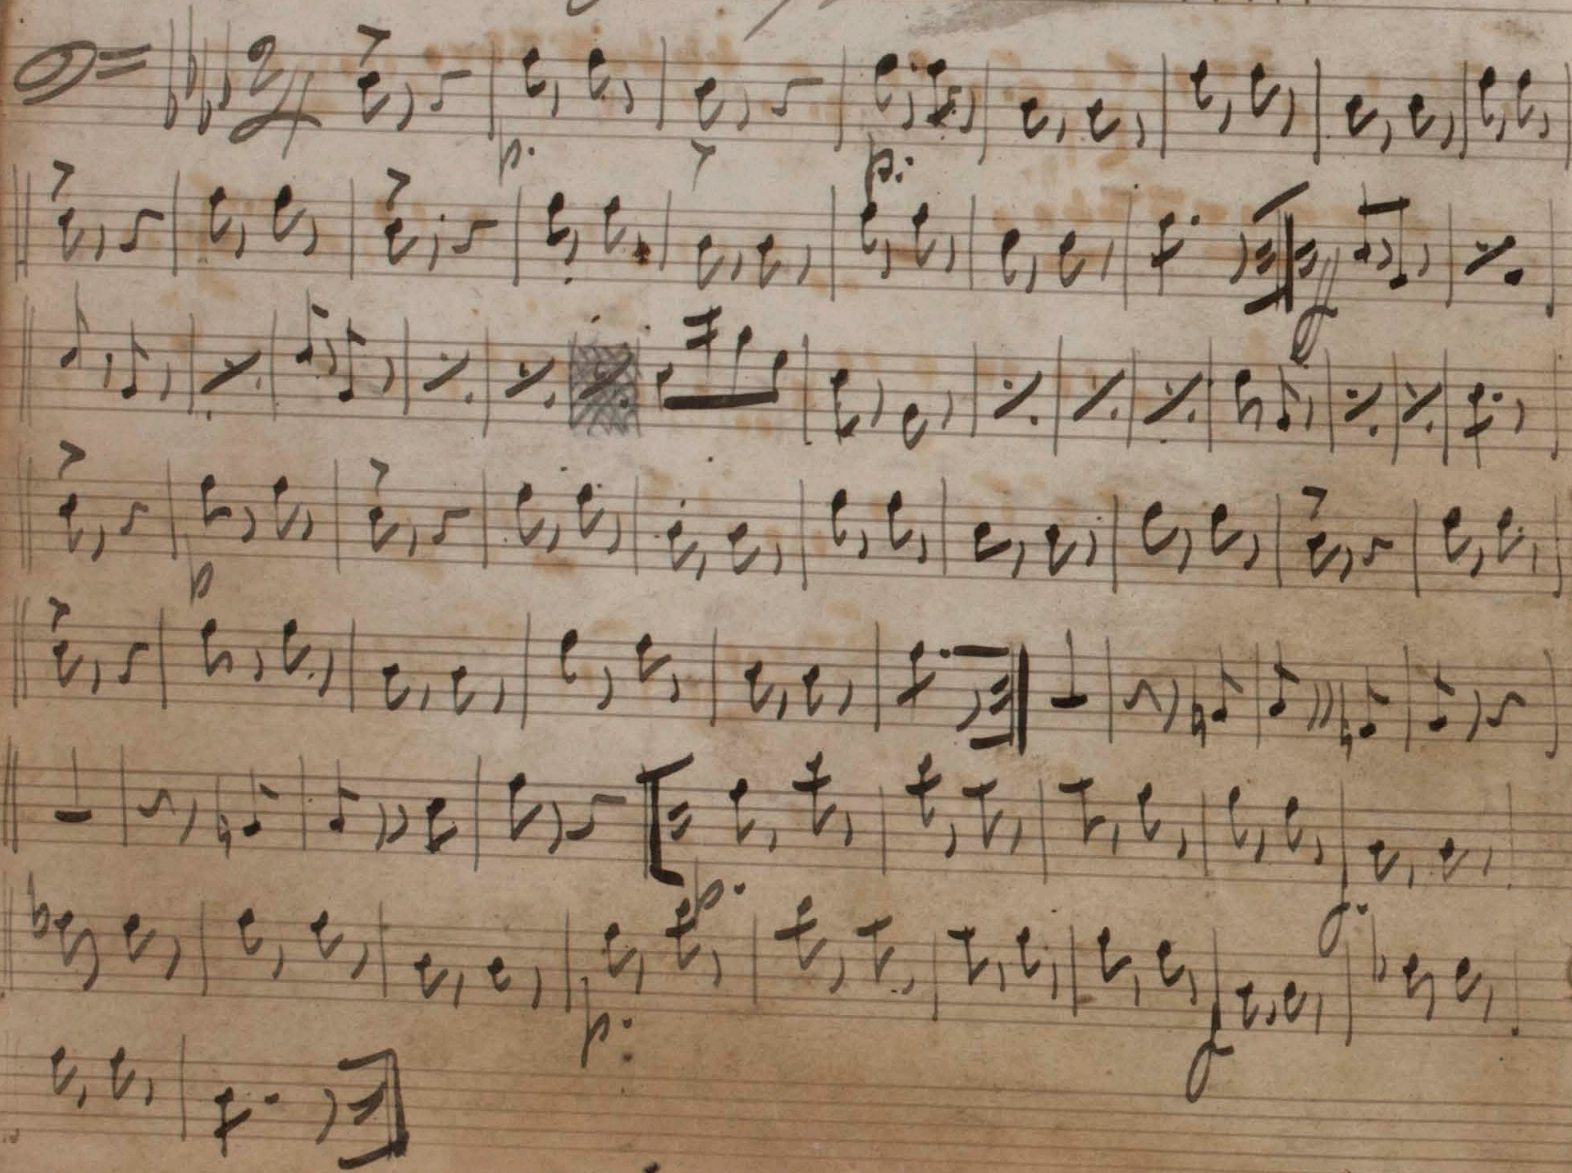 2/4
p.
p.
f
p
p.
f.
p.
f